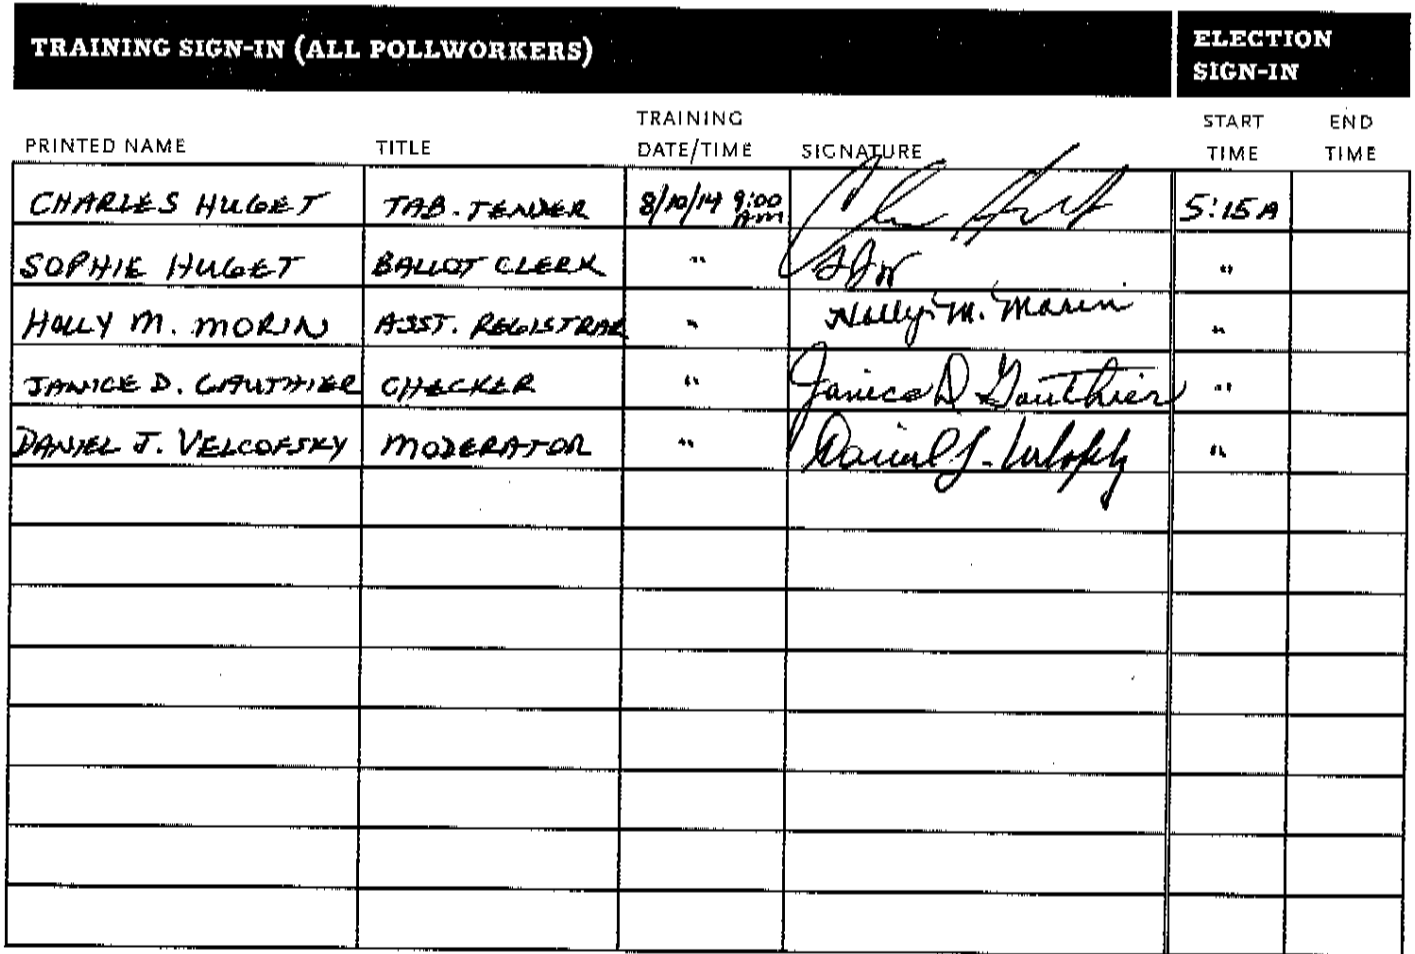 TRAINING SIGN-IN (ALL POLLWORKERS)
ELECTION SIGN-IN
PRINTED NAME TITLE TRAINING DATE/TIME SIGNATURE START TIME END TIME
CHARLES HUGET TAB. TENDER 8/10/14 9:00 AM 5:15 A
SOPHIE HUGET BALLOT CLERK " "
HOLLY M. MORIN ASST. REGISTRAR " Holly M. Morin "
JANICE D. GAUTHIER CHECKER " Janice D Gauthier "
DANIEL J. VELCOFSKY MODERATOR " Daniel J. "